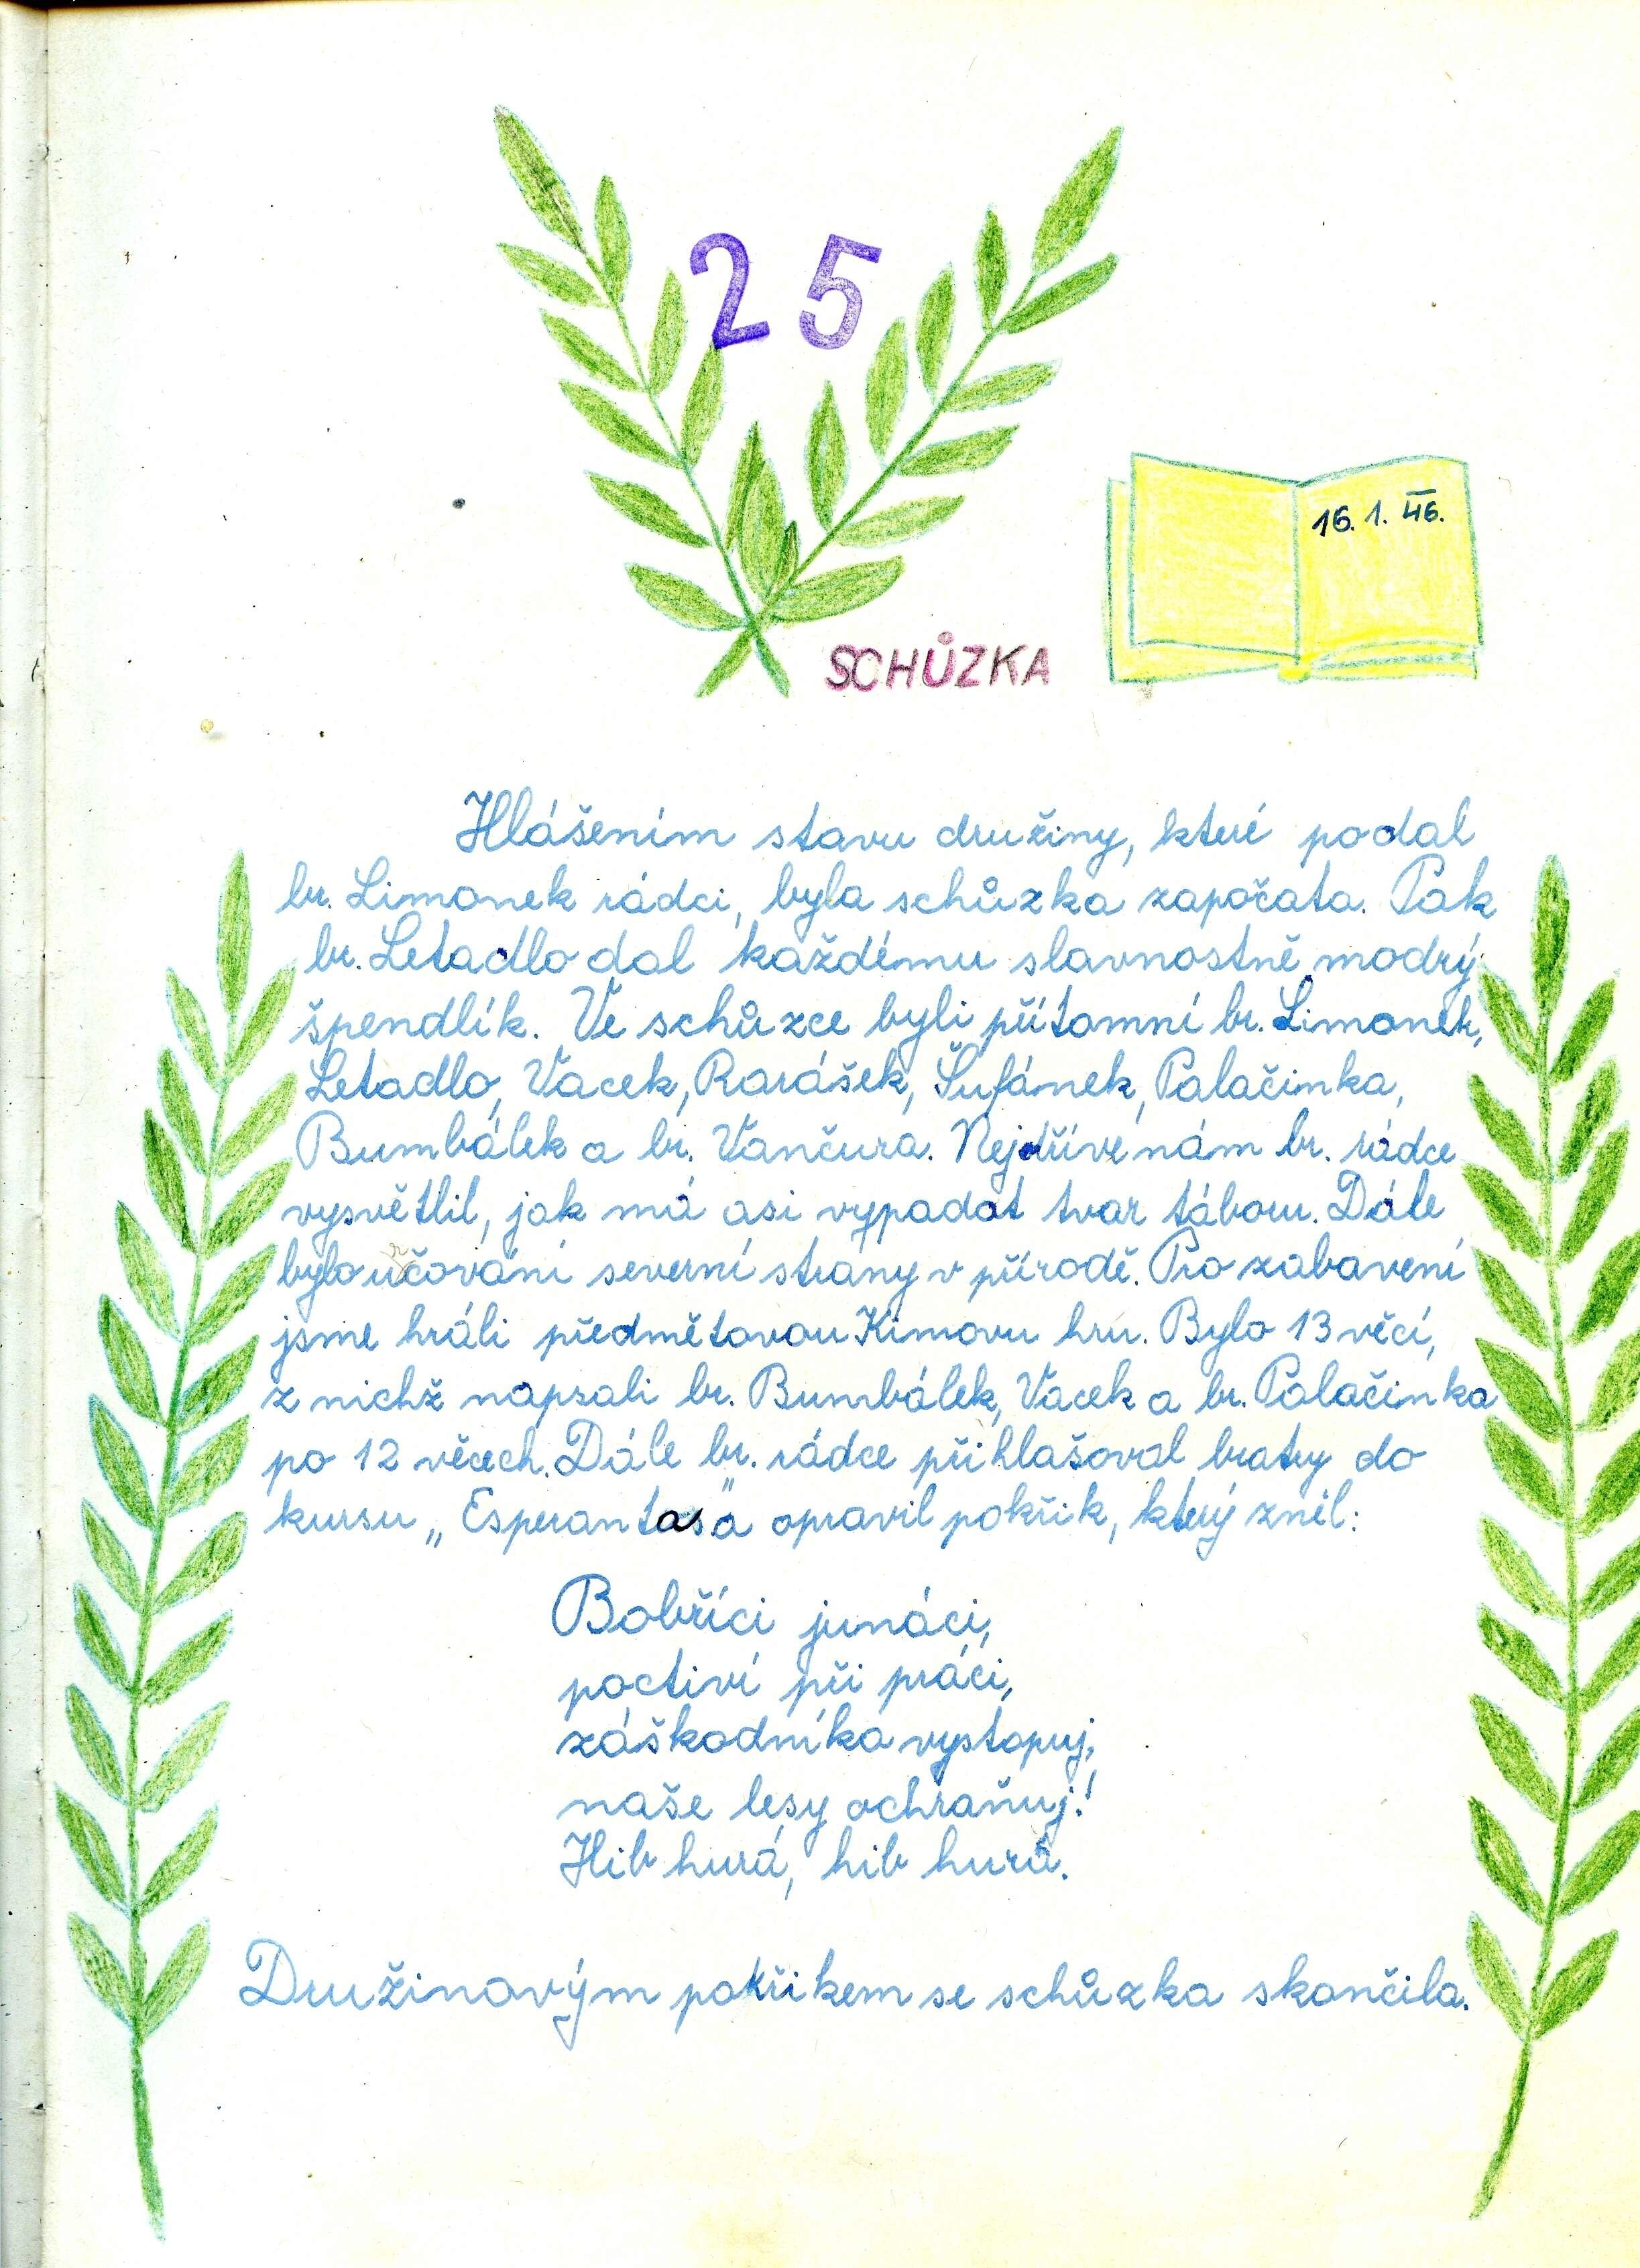 25
16. 1. 46.
SCHŮZKA
Hlášením stavu družiny, které podal
br. Limonek rádci, byla schůzka započata. Pak
br. Letadlo dal každému slavnostně modrý
špendlík. Ve schůzce byli přítomní br. Limonek,
Letadlo, Vacek, Rarášek, Šufánek, Palačinka,
Bumbálek a br. Vančura. Nejdříve nám br. rádce
vysvětlil, jak má asi vypadat tvar táboru. Dále
bylo určování severní strany v přírodě. Pro zabavení
jsme hráli předmětovou Kimovu hru. Bylo 13 věcí,
z nichž napsali br. Bumbálek, Vacek a br. Palačinka
po 12 věcech. Dále br. rádce přihlašoval bratry do
kursu „Esperanta" a opravil pokřik, který zněl:
Bobříci junáci,
poctiví při práci,
záškodníka vystopuj,
naše lesy ochraňuj!
Hib hurá, hib hurá.
Družinovým pokřikem se schůzka skončila.